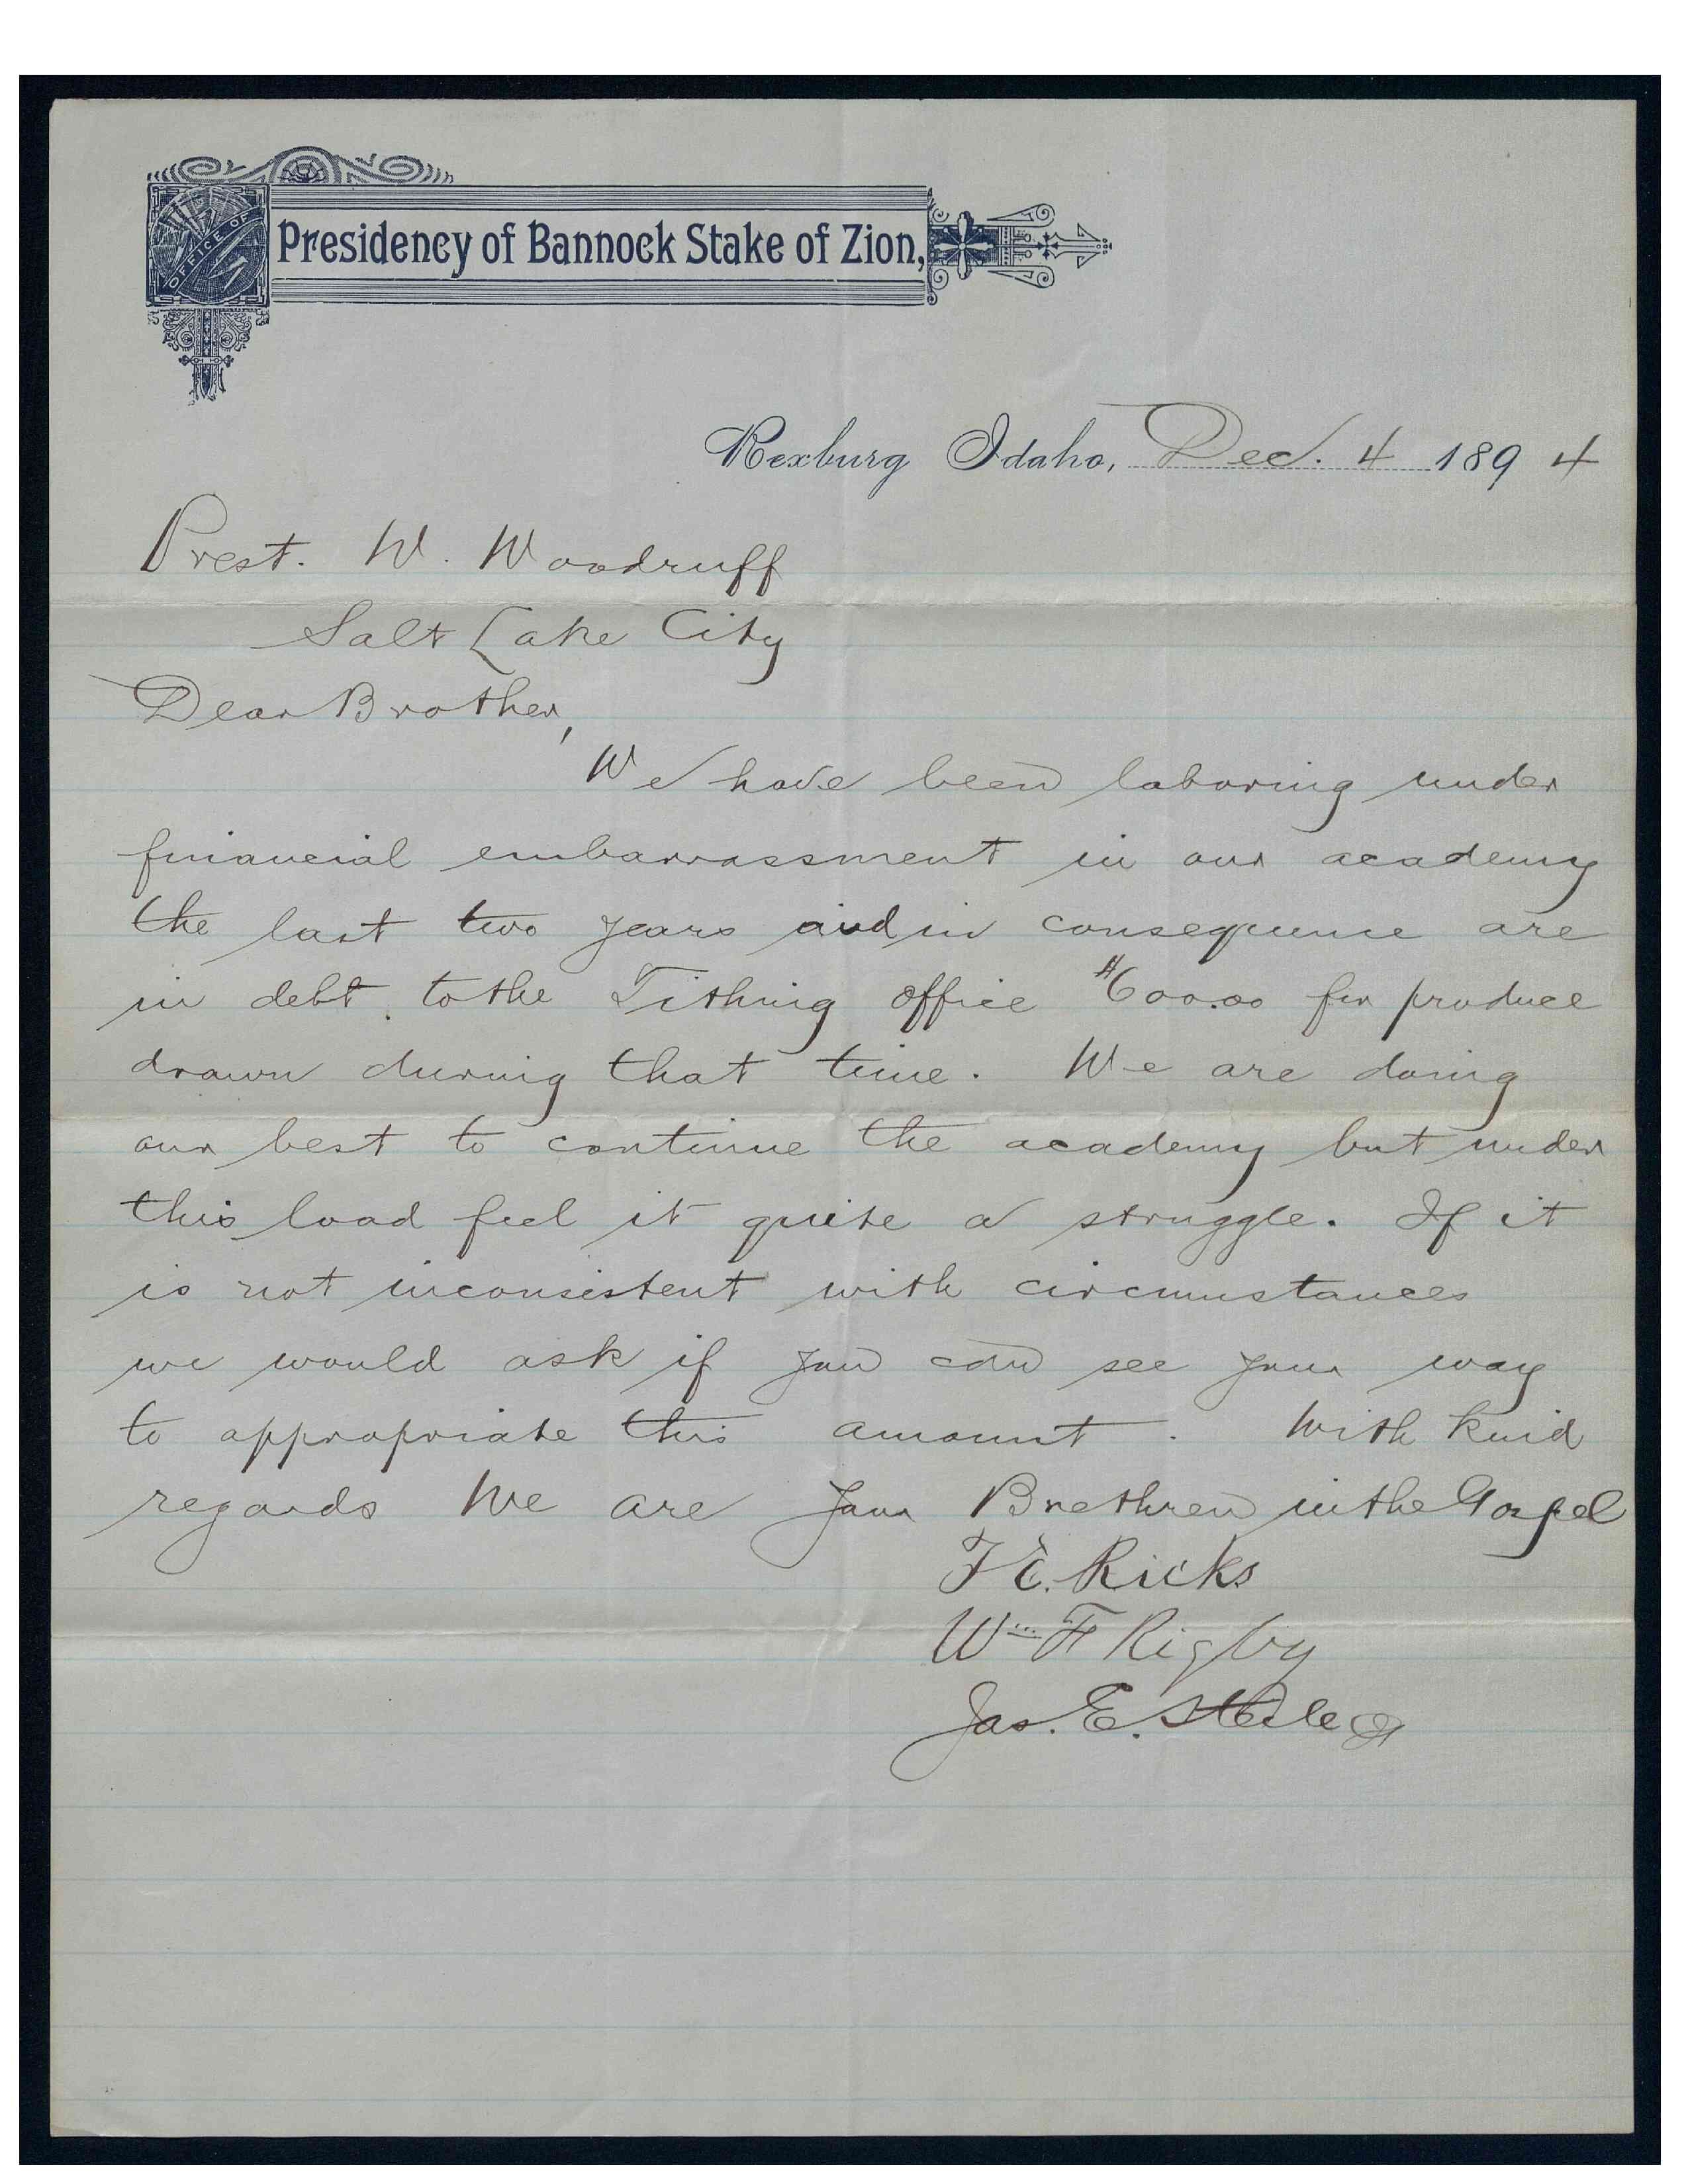 OFFICE OF
Presidency of Bannock Stake of Zion,
Rexburg Idaho, Dec. 4 1894
Prest. W. Woodruff
Salt Lake City
Dear Brother,
We have been laboring under
financial embarrassment in our academy
the last two years and in consequence are
in debt to the Tithing office $600.00 for produce
drawn during that time. We are doing
our best to continue the academy but under
this load feel it quite a struggle. If it
is not inconsistent with circumstances
we would ask if you can see your way
to appropriate this amount. With kind
regards We are your Brethren in the Gospel
T E. Ricks
Wm F Rigby
Jas. E.